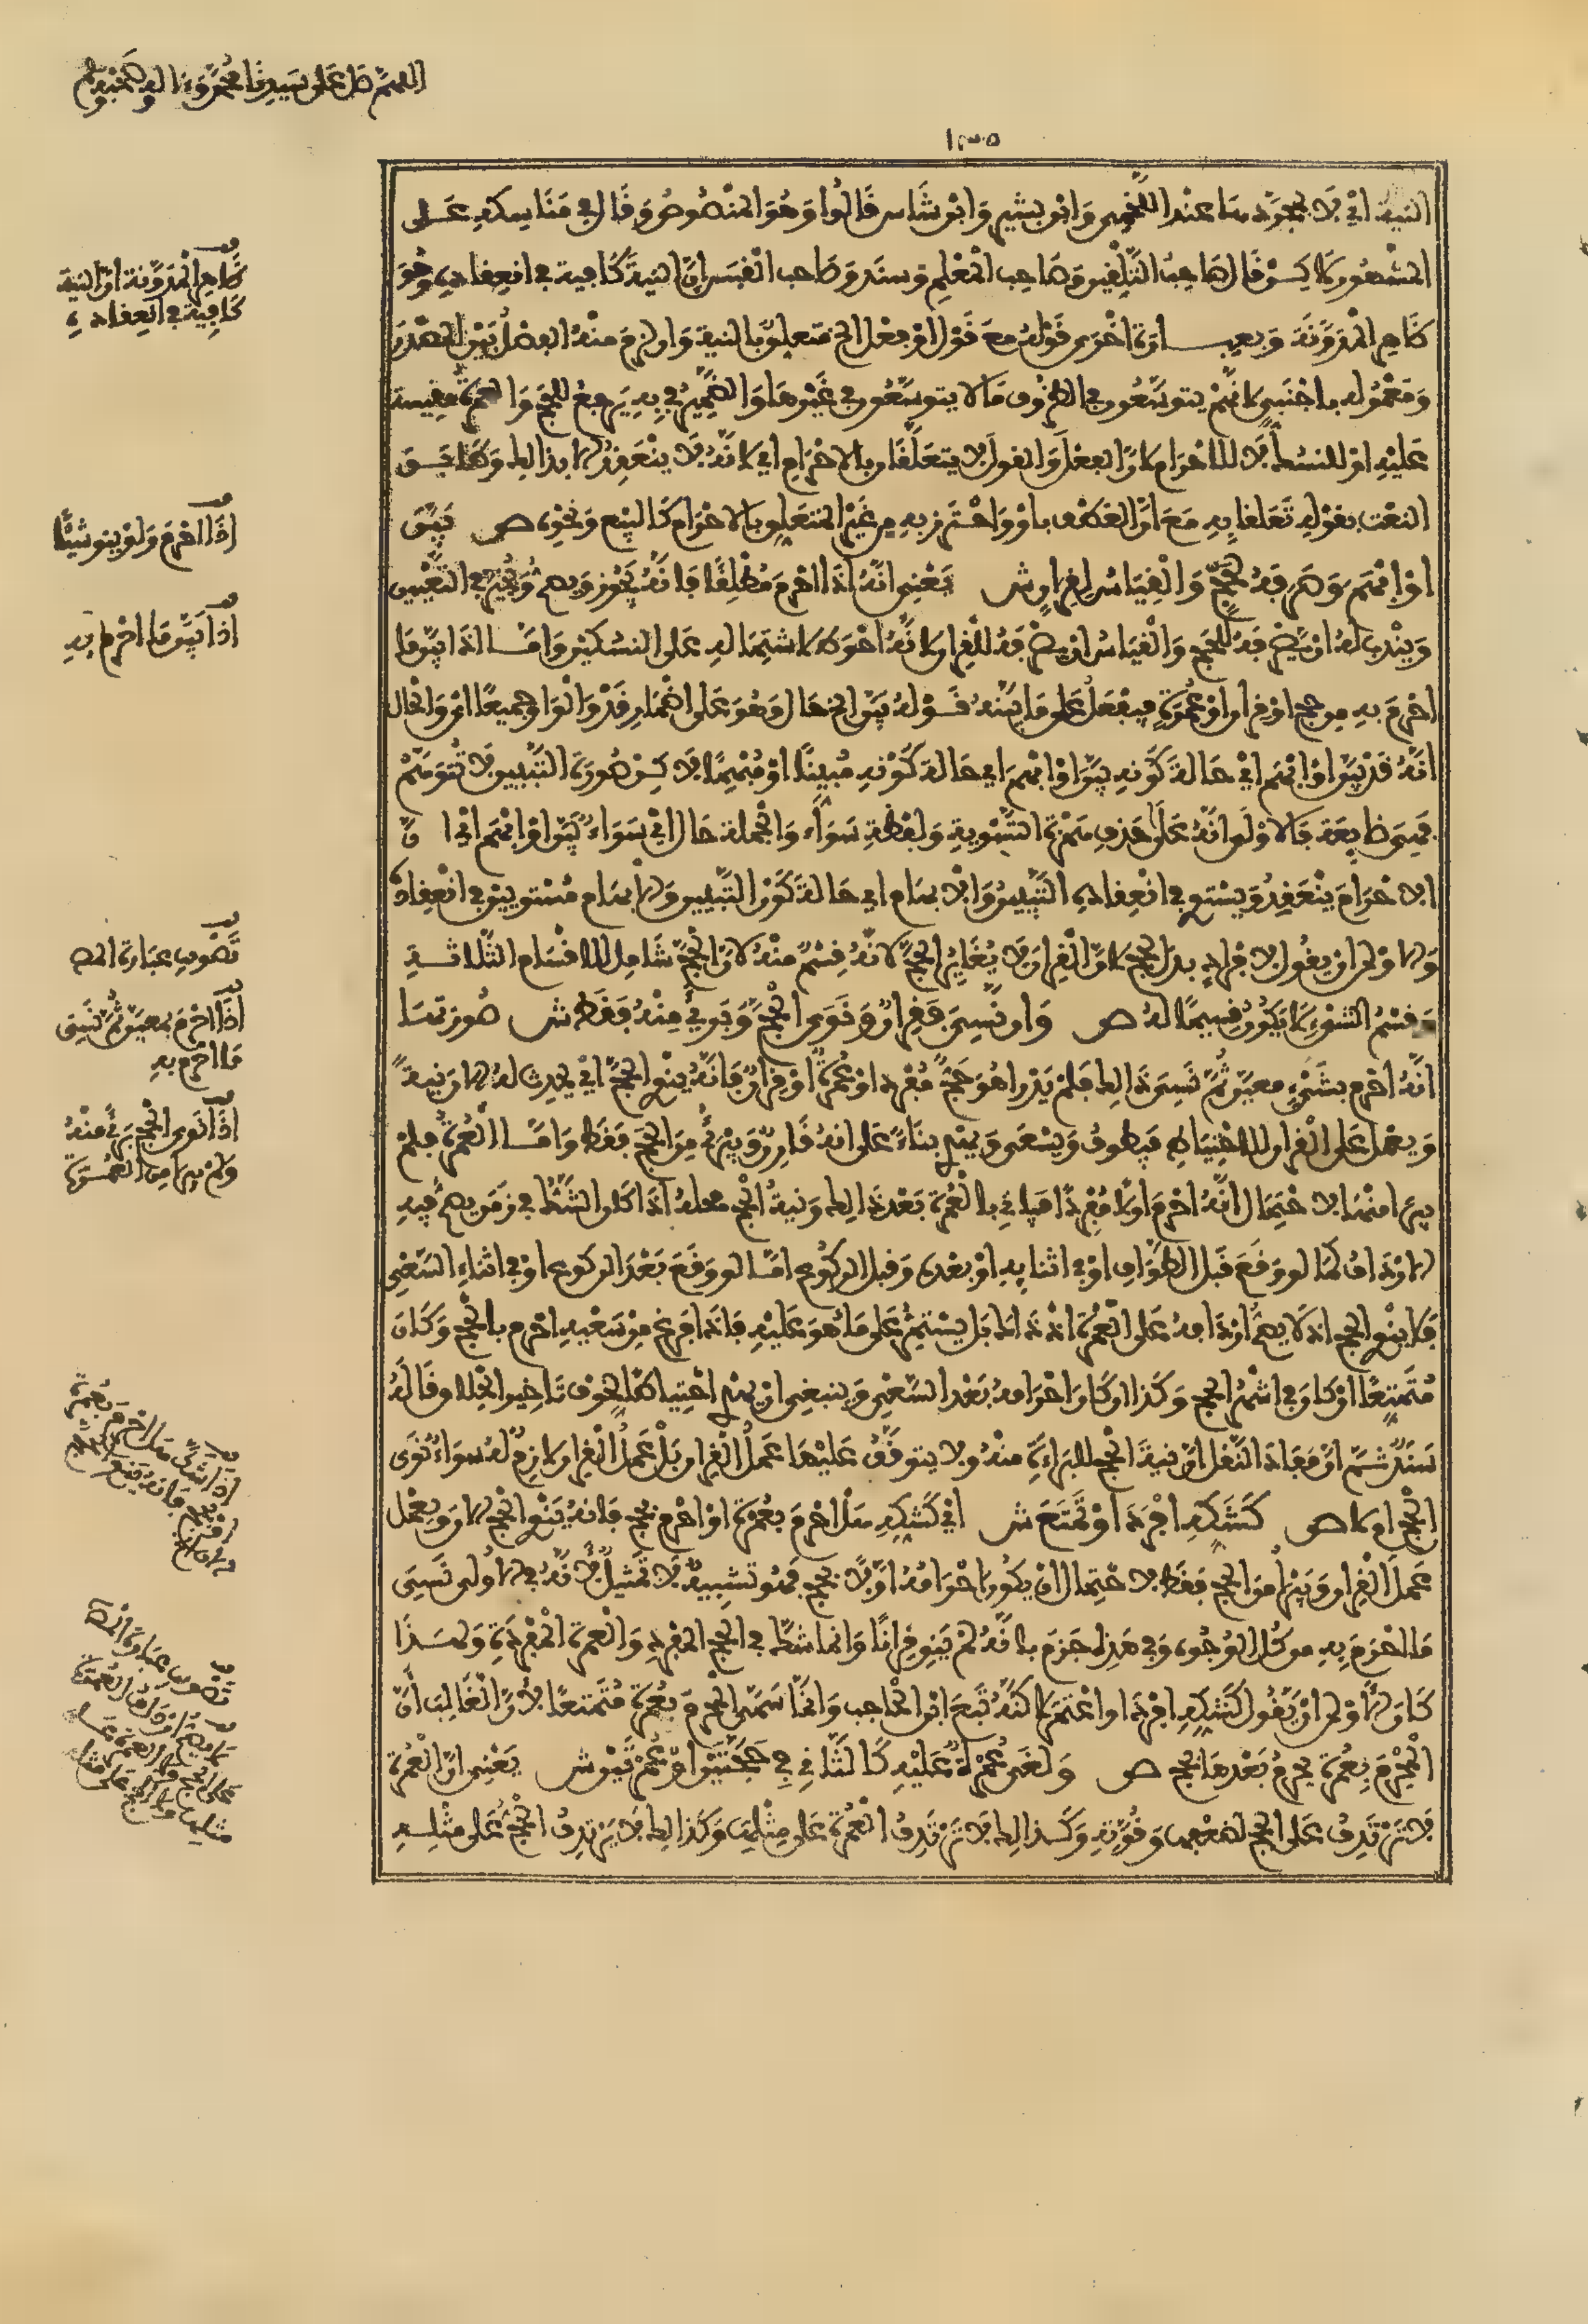 اللهم صل على سيدنا محمد وءاله وصحبه
١٣٥
النية اي فلا بمجردها عند اللخمي وابن بشير وابن شاس قالوا وهو المنصوص وقال في مناسكه على
المشهور لاكن قال صاحب التلقين وصاحب المعلم وسند وصاحب القبس ان النية كافية في انعقاده وهو
ظاهر المدونة وبعبارة اخرى قوله مع قول او فعل الخ متعلق بالنية وان لزم منه الفصل بين المصدر
ومعموله باجنبي لانهم يتوسعون في الظروف ما لا يتوسعون في غيرها والضمير في به يرجع للحج والعمرة
عليه او للنسك لا للاحرام لان الفعل والقول لا يتعلقان بالاحرام اي لانه لا ينعقد الا بذلك
النعت بقوله تعلقا به مع ان العطف باو واحترز به من غير المتعلق بالاحرام كالبيع ونحوه ص بين
او ابهم وصرفه لحج والقياس لقران ش يعني انه اذا احرم مطلقا فانه يجوز ويصح ويخير في التعيين
ويندب له ان يصرفه للحج والقياس ان يصرفه للقران لانه احوط لاشتماله على النسكين واما اذا بين ما
احرم به من حج او قران او عمرة فيفعل على ما بينه قوله بين الخ حال وهو على اضمار قد والواو جميعا اي والحال
انه قد بين او ابهم اي حالة كونه بين او ابهم اي حالة كونه مبينا او مبهما لاكن صورة التبيين لا تتوهم
فهي وظايفة فالاولى انه على حذف همزة التسوية ولفظة سواء والجملة حال اي سواء بين او ابهم اي ان
الاحرام ينعقد ويستوي في انعقاده التبيين والابهام اي حالة كون التبيين والابهام مستويين في انعقاده
والاولى ان يقول لافراد بدل لحج لان القران لا يغاير الحج لانه قسم منه لان الحج شامل للاقسام الثلاثة
وقسم الشيء لا يكون قسيما له ص وان نسي فقران ونوى الحج وبرئ منه فقط ش صورتها
انه احرم بشيء معين ثم نسي ذالك فلم يدر اهو حج مفرد او عمرة او قران فانه ينوي الحج اي يحدث له الان نية
ويعمل على القران للاحتياط فيطوف ويسعى ويهدي بناء على انه قارن ويبرأ من الحج فقط واما العمرة فلم
يبرا منها لاحتمال انه احرم اولا مفردا فياتي بالعمرة بعد ذالك ونية الحج محله اذا كان الشك في زمن يصح فيه
الارداف كما لو وقع قبل الطواف او في اثنايه او بعده وقبل الركوع اما لو وقع بعد الركوع او في اثناء السعي
فلا ينوي الحج اذ لا يصح اردافه على العمرة اذ ذاك بل يستمر على ما هو عليه فاذا فرغ من سعيه احرم بالحج وكان
متمتعا ان كان في اشهر الحج وكذا ان كان احرامه بعد السعي وينبغي ان يهدي احتياطا لخوف تاخير الحلاق وقاله
سند ثم ان مفاد النقل ان نية الحج للبراءة منه ولا يتوقف عليها عمل القران بل عمل القران لازم له سواء نوى
الحج ام لا ص كشكه افرد او تمتع ش اي كشكه هل احرم بعمرة او احرم بحج فانه ينوي الحج الان ويعمل
عمل القران ويبرا من الحج فقط لاحتمال ان يكون احرامه اولا بحج فهو تشبيه لا تمثيل لانه في الاولى نسي
ما احرم به من كل الوجوه وفي هذه جزم بانه لم ينو قرانا وانما شك في الحج المفرد والعمرة المفردة ولهذا
كان الاولى ان يقول كشكه افرد او اعتمر لاكنه تبع ابن الحاجب وانما سمى المحرم بعمرة متمتعا لان الغالب ان
المحرم بعمرة يحرم بعدها بحج ص ولغى عمرة عليه كالثاني في حجتين او عمرتين ش يعني ان العمرة
لا ترتدف على الحج لضعفها وقوته وكذالك لا ترتدف العمرة على مثلها وكذالك لا يرتدف الحج على مثله
ظاهر المدونة ان النية
كافية في انعقاده
اذا احرم ولم ينو شيئا
اذا بين ما احرم به
تصويب عبارة المص
اذا احرم بمعين ثم نسي
ما احرم به
اذا نوى الحج برئ منه
ولم يبرا من العمرة
اذا شك هل احرم بعمرة
تصويب عبارة المص